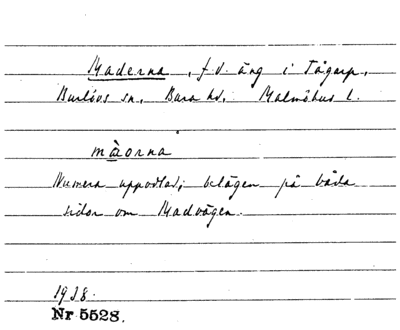 Maderna, f.d. äng i Tågarp,
Burlövs sn, Bara hd, Malmöhus l.
màorna
Numera uppodlad; belägen på båda
sidor om Madvägen.
1938.
Nr 5528.